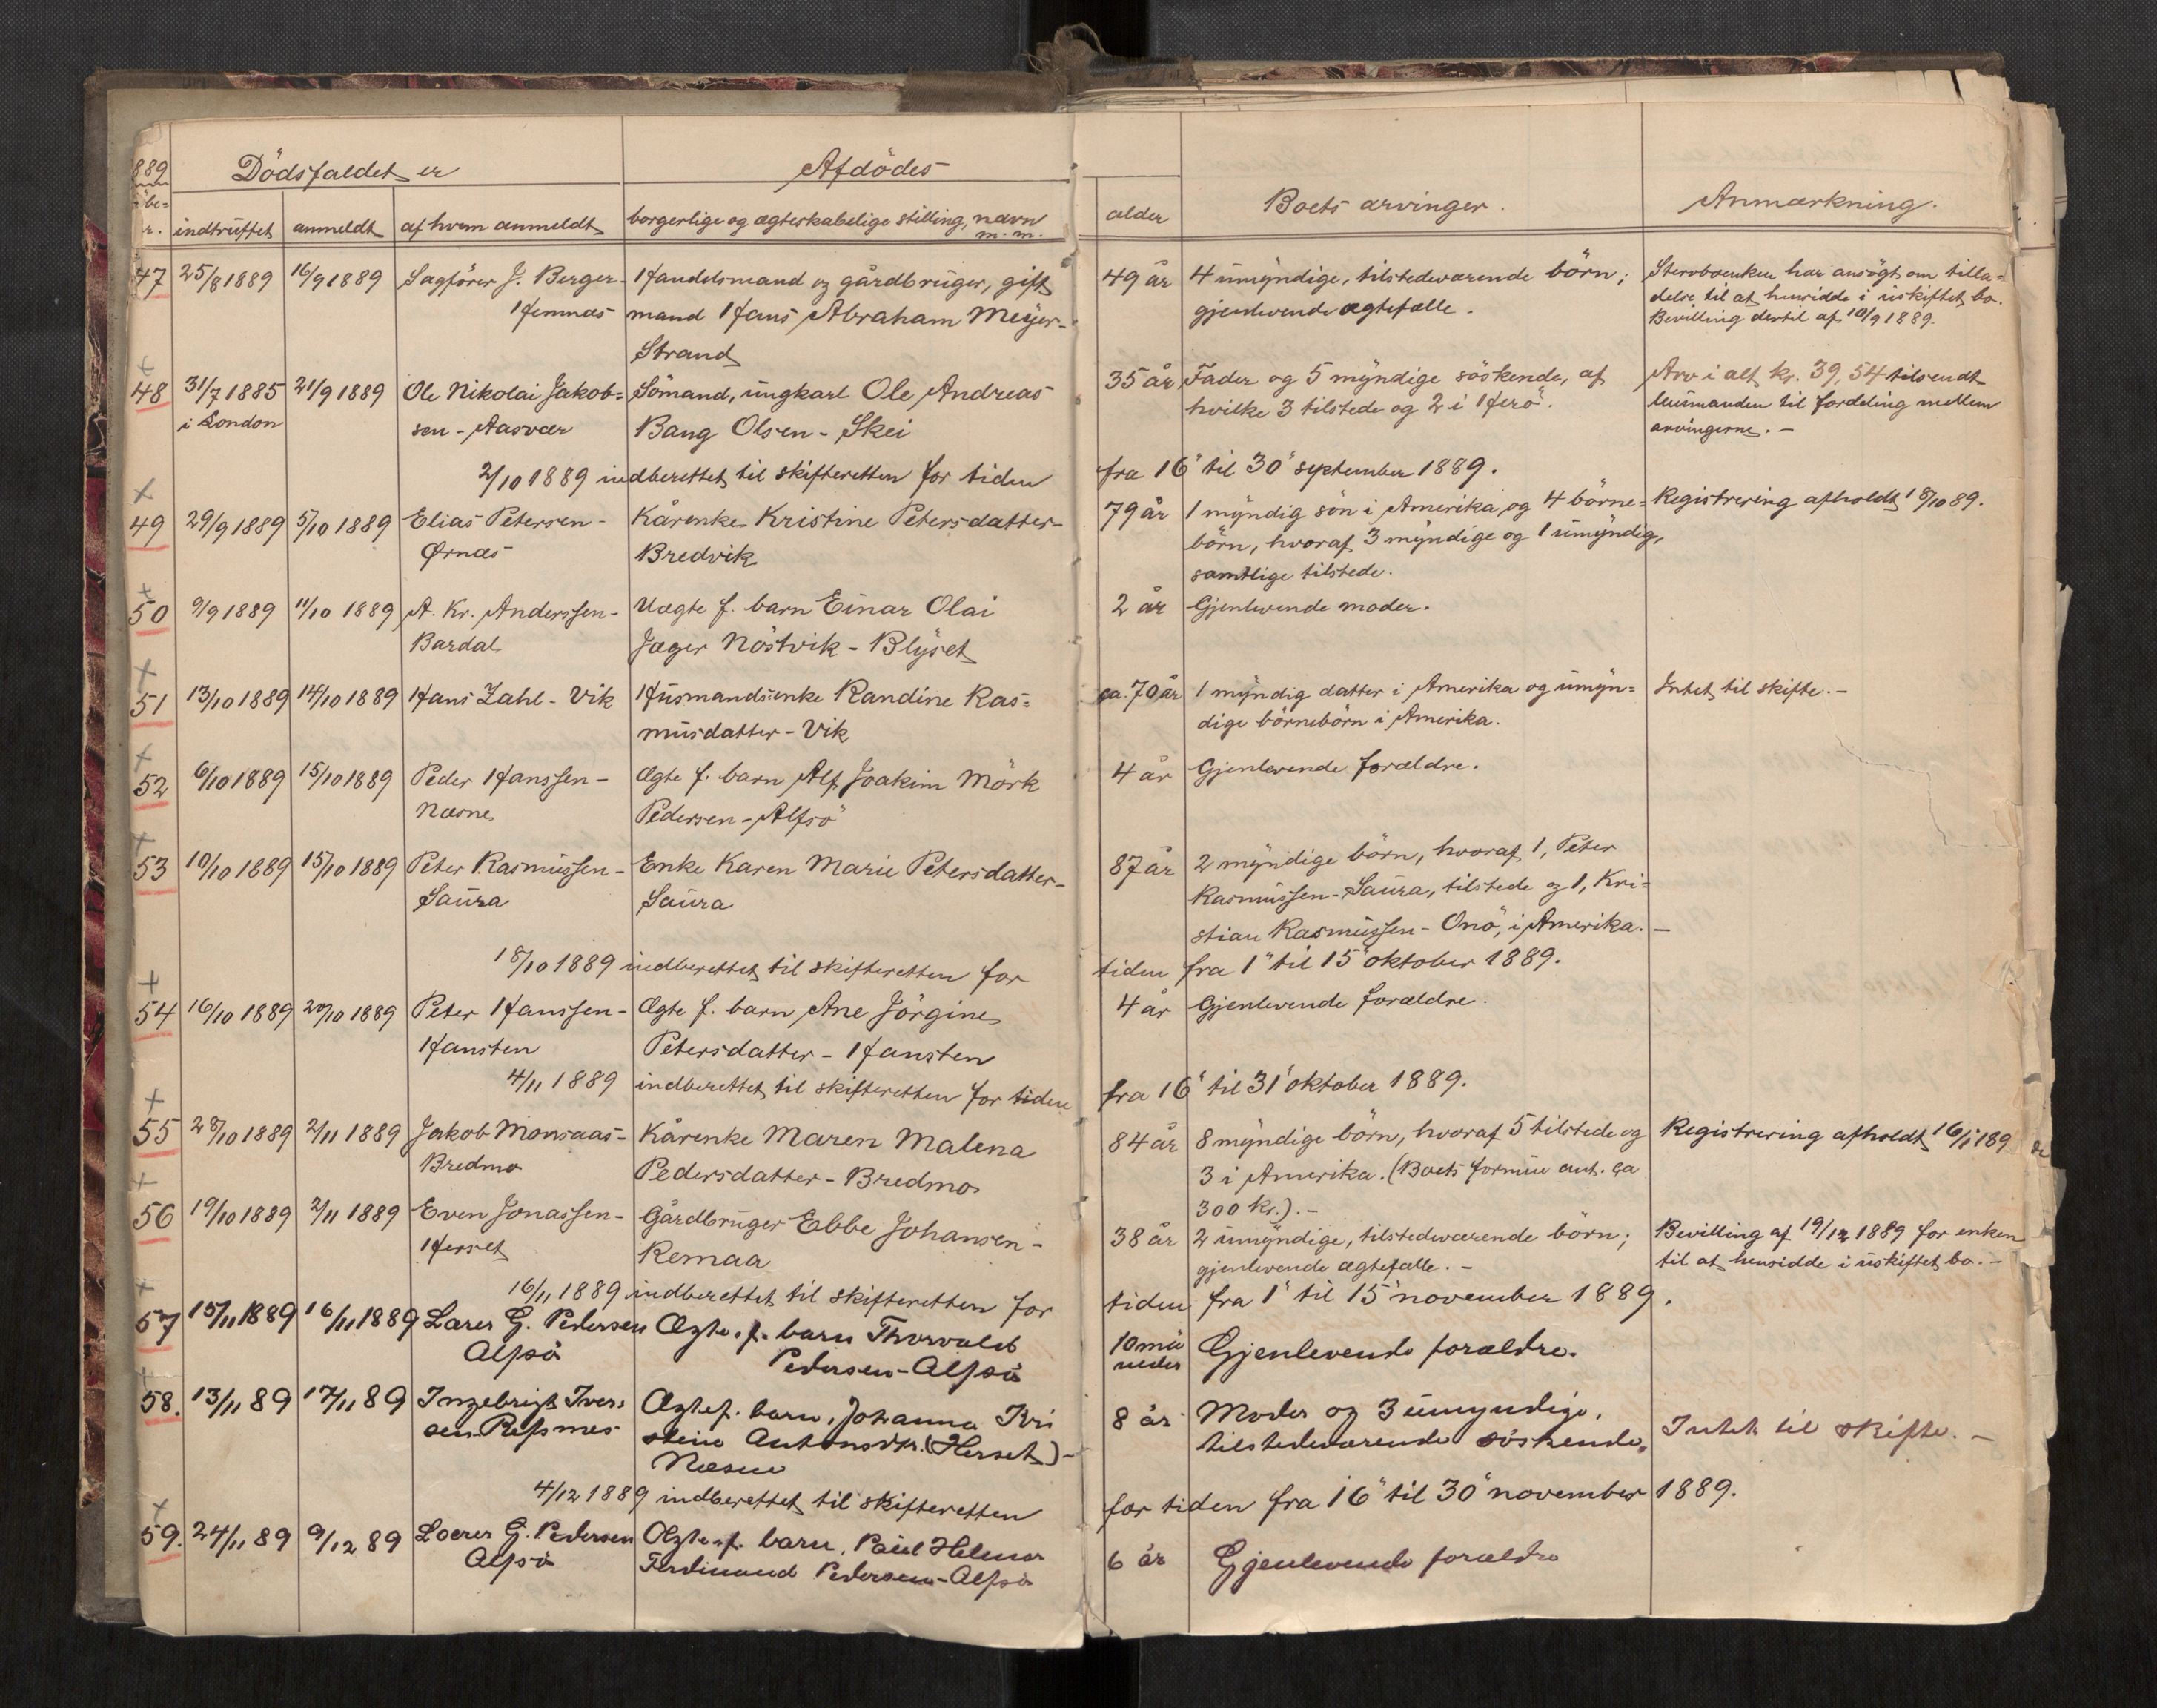 889
Dödsfaldet er
Afdödes
indtruffet
anmeldt
af hvem anmeldt
borgerlige og ægteskabelige stilling, navn m. m.
alder
Boets arvinger.
Anmærkning.
47 25/8 1889 16/9 1889 Sagförer J. Berger- Handelsmand og gårdbruger, gift 49 år 4 umyndige, tilstedeværende börn; Stervboenken har ansögt om tilla=
Hemnæs mand Hans Abraham Meyer- gjenlevende ægtefælle. delse til at hensidde i uskiftet bo.
Strand Bevilling dertil af 10/9 1889.
48 31/7 1885 21/9 1889 Ole Nikolai Jakob= Sömand, ungkarl Ole Andreas 35 år Fader og 5 myndige söskende, af Arv i alt kr. 39,54 tilsendt
i London sen - Aasvær Bang Olsen - Skei hvilke 3 tilstede og 2 i Herö. lensmanden til fordeling mellem
arvingerne. -
2/10 1889 indberettet til skifteretten for tiden fra 16" til 30" september 1889.
49 29/9 1889 5/10 1889 Elias Petersen - Kårenke Kristine Petersdatter- 79 år 1 myndig sön i Amerika og 4 börne= Registrering afholdt 18/10 89.
Ørnæs Bredvik börn, hvoraf 3 myndige og 1 umyndig,
samtlige tilstede.
50 9/9 1889 11/10 1889 A. Kr. Anderssen- Uægte f. barn Einar Olai 2 år Gjenlevende moder.
Bardal Jæger Nöstvik - Blyset
51 13/10 1889 14/10 1889 Hans Zahl - Vik Husmandsenke Randine Ras= ca. 70 år 1 myndig datter i Amerika og umyn= Intet til skifte. -
musdatter - Vik dige börnebörn i Amerika.
52 6/10 1889 15/10 1889 Peder Hanssen - Ægte f. barn Alf Joakim Mörk 4 år Gjenlevende forældre.
Næsne Pedersen - Alfsö
53 10/10 1889 15/10 1889 Peter Rasmussen - Enke Karen Marie Petersdatter- 87 år 2 myndige börn, hvoraf 1, Peter
Saura Saura Rasmussen - Saura, tilstede og 1, Kri=
stian Rasmussen - Onö, i Amerika. -
18/10 1889 indberettet til skifteretten for tiden fra 1" til 15" oktober 1889.
54 16/10 1889 20/10 1889 Peter Hanssen - Ægte f. barn Ane Jörgine 4 år Gjenlevende forældre.
Hansten Petersdatter - Hansten
4/11 1889 indberettet til skifteretten for tiden fra 16" til 31" oktober 1889.
55 28/10 1889 2/11 1889 Jakob Monsaas- Kårenke Maren Malena 84 år 8 myndige börn, hvoraf 5 tilstede og Registrering afholdt 16/1 189
Bredmo Pedersdatter - Bredmo 3 i Amerika. (Boets formue ant. ca
300 kr.). -
56 19/10 1889 2/11 1889 Even Jonassen - Gårdbruger Ebbe Johansen - 38 år 2 umyndige, tilstedeværende börn; Bevilling af 19/12 1889 for enken
Herset Remaa gjenlevende ægtefælle. - til at hensidde i uskiftet bo. -
16/11 1889 indberettet til skifteretten for tiden fra 1" til 15" november 1889.
57 15/11 1889 16/11 1889 Lærer G. Pedersen Ægte. f. barn Thorvald 10 må Gjenlevende forældre.
Alfsö Pedersen - Alfsö neder
58. 13/11 89 17/11 89 Ingebrigt Iver- Ægtef. barn, Johanna Kri 8 år Moder og 3 umyndige, Intet til skifte. -
sen Ressmes stine Antonsdtr. (Herset) - tilstedeværende söskende.
Næsne
4/12 1889 indberettet til skifteretten for tiden fra 16" til 30" november 1889.
59. 24/11 89 9/12 89 Lærer G. Pedersen Ægte. f. barn. Paul Helmer 6 år Gjenlevende forældre
Alfsö Ferdinand Pedersen - Alfsö